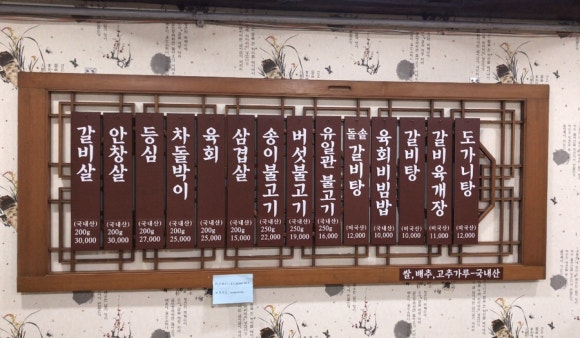 갈비살
(국내산)
200g
30,000
안창살
(국내산)
200g
30,000
등심
(국내산)
200g
27,000
차돌박이
(국내산)
200g
25,000
육회
(국내산)
200g
25,000
삼겹살
(국내산)
200g
15,000
송이불고기
(국내산)
250g
22,000
버섯불고기
(국내산)
250g
19,000
유일관 불고기
(국내산)
250g
16,000
돌솥
갈비탕
(미국산)
12,000
육회비빔밥
(국내산)
10,000
갈비탕
(미국산)
10,000
갈비육개장
(미국산)
11,000
도가니탕
(미국산)
12,000
쌀,배추,고추가루-국내산